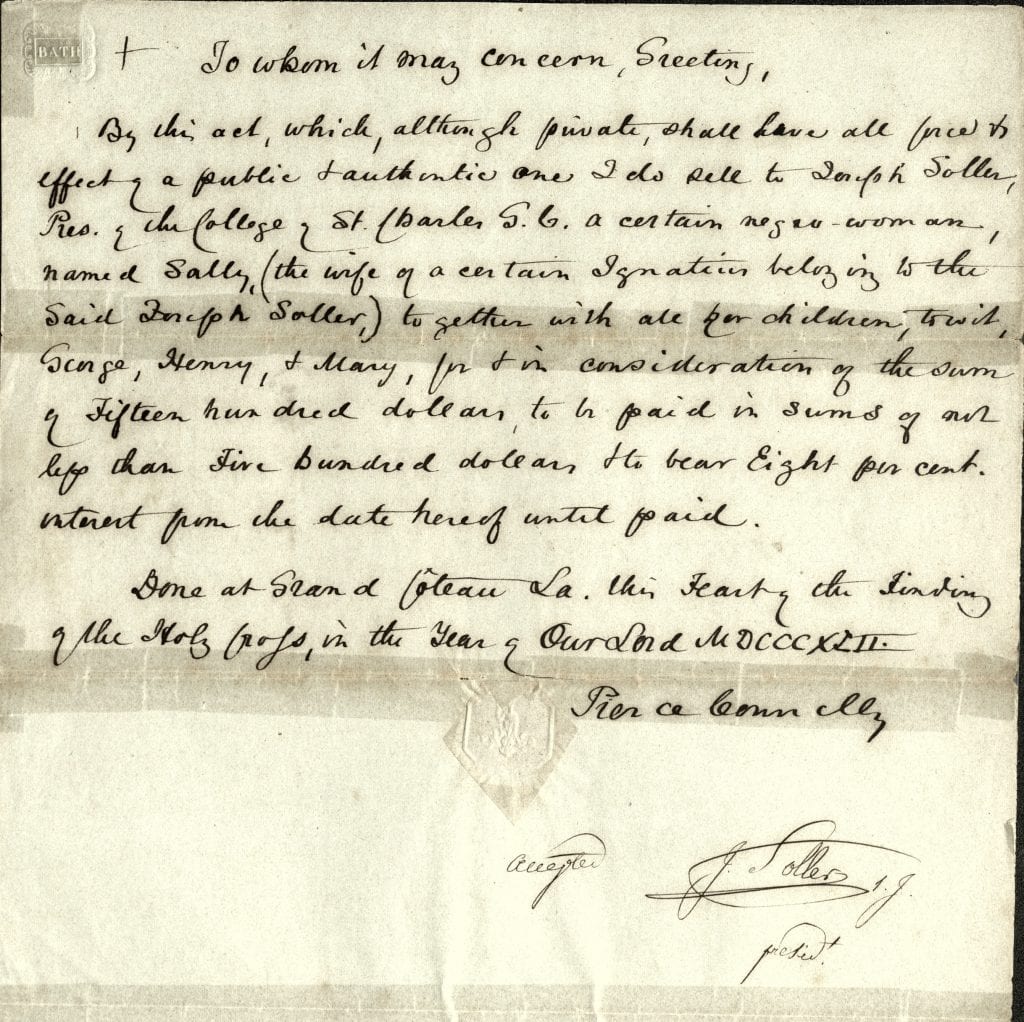 BATH
+ To whom it may concern, Greeting,
By this act, which, although private, shall have all force &
effect of a public & authentic one I do sell to Joseph Soller,
Pres. of the College of St. Charles G. C. a certain negro-woman,
named Sally, (the wife of a certain Ignatius belonging to the
said Joseph Soller,) together with all her children, to wit,
George, Henry, & Mary, for & in consideration of the sum
of Fifteen hundred dollars, to be paid in sums of not
less than Five hundred dollars & to bear Eight per cent.
interest from the date hereof until paid.
Done at Grand Côteau La. this Feast of the Finding
of the Holy Cross, in the Year of Our Lord MDCCCXLII.
Pierce Connelly
accepted J. Soller s.J.
presidt.